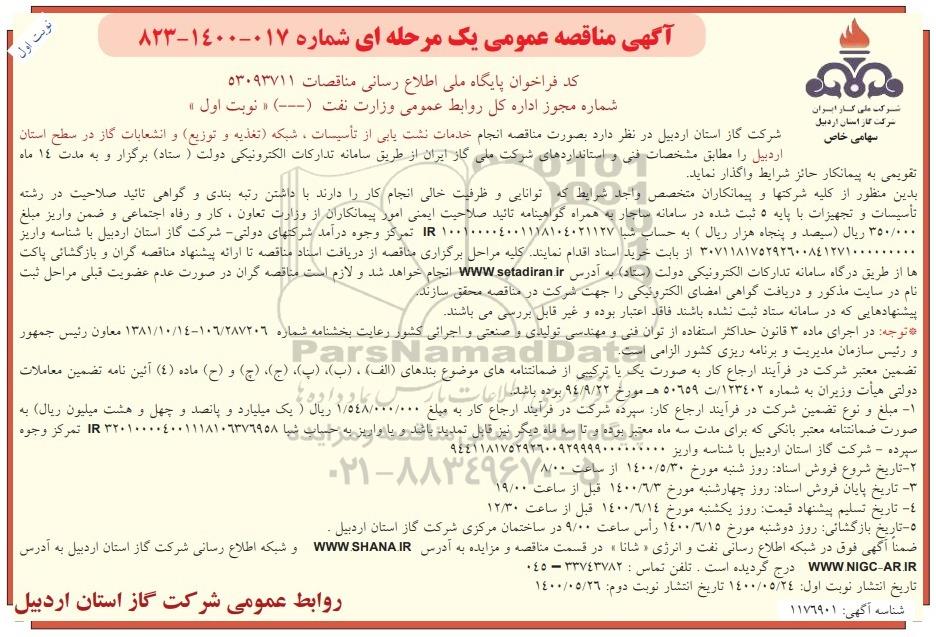 نوبت اول
آگهی مناقصه عمومی یک مرحله ای شماره ۰۱۷-۱۴۰۰-۸۲۳
کد فراخوان پایگاه ملی اطلاع رسانی مناقصات ۵۳۰۹۳۷۱۱
شماره مجوز اداره کل روابط عمومی وزارت نفت (---) « نوبت اول »
شرکت ملی گاز ایران
شرکت گاز استان اردبیل
سهامی خاص
شرکت گاز استان اردبیل در نظر دارد بصورت مناقصه انجام خدمات نشت یابی از تأسیسات ، شبکه (تغذیه و توزیع) و انشعابات گاز در سطح استان
اردبیل را مطابق مشخصات فنی و استانداردهای شرکت ملی گاز ایران از طریق سامانه تدارکات الکترونیکی دولت ( ستاد) برگزار و به مدت ۱۴ ماه
تقویمی به پیمانکار حائز شرایط واگذار نماید.
بدین منظور از کلیه شرکتها و پیمانکاران متخصص واجد شرایط که توانایی و ظرفیت خالی انجام کار را دارند با داشتن رتبه بندی و گواهی تائید صلاحیت در رشته
تأسیسات و تجهیزات با پایه ۵ ثبت شده در سامانه ساجار به همراه گواهینامه تائید صلاحیت ایمنی امور پیمانکاران از وزارت تعاون ، کار و رفاه اجتماعی و ضمن واریز مبلغ
۳۵۰/۰۰۰ ریال (سیصد و پنجاه هزار ریال ) به حساب شبا IR ۱۰۰۱۰۰۰۰۴۰۰۱۱۱۸۱۰۴۰۲۱۱۲۷ تمرکز وجوه درآمد شرکتهای دولتی- شرکت گاز استان اردبیل با شناسه واریز
۳۰۷۱۱۸۱۷۵۲۹۲۶۰۰۸۴۱۲۷۱۰۰۰۰۰۰۰۰۰ از بابت خرید اسناد اقدام نمایند. کلیه مراحل برگزاری مناقصه از دریافت اسناد مناقصه تا ارائه پیشنهاد مناقصه گران و بازگشائی پاکت
ها از طریق درگاه سامانه تدارکات الکترونیکی دولت (ستاد) به آدرس WWW.setadiran.ir انجام خواهد شد و لازم است مناقصه گران در صورت عدم عضویت قبلی مراحل ثبت
نام در سایت مذکور و دریافت گواهی امضای الکترونیکی را جهت شرکت در مناقصه محقق سازند.
پیشنهادهایی که در سامانه ستاد ثبت نشده باشند فاقد اعتبار بوده و غیر قابل بررسی می باشند.
*توجه: در اجرای ماده ۳ قانون حداکثر استفاده از توان فنی و مهندسی تولیدی و صنعتی و اجرائی کشور رعایت بخشنامه شماره ۱۰۶/۲۸۷۲۰۶-۱۳۸۱/۱۰/۱۴ معاون رئیس جمهور
و رئیس سازمان مدیریت و برنامه ریزی کشور الزامی است.
تضمین معتبر شرکت در فرآیند ارجاع کار به صورت یک یا ترکیبی از ضمانتنامه های موضوع بندهای (الف) ، (ب)، (پ)، (ج)، (چ) و (ح) ماده (۴) آئین نامه تضمین معاملات
دولتی هیأت وزیران به شماره ۱۲۳۴۰۲/ت ۵۰۶۵۹ هـ مورخ ۹۴/۹/۲۲ بوده باشد.
۱- مبلغ و نوع تضمین شرکت در فرآیند ارجاع کار: سپرده شرکت در فرآیند ارجاع کار به مبلغ ۱/۵۴۸/۰۰۰/۰۰۰ ریال ( یک میلیارد و پانصد و چهل و هشت میلیون ریال) به
صورت ضمانتنامه معتبر بانکی که برای مدت سه ماه معتبر بوده و تا سه ماه دیگر نیز قابل تمدید باشد و یا واریز به حساب شبا IR ۳۲۰۱۰۰۰۰۴۰۰۱۱۱۸۱۰۶۳۷۶۹۵۸ تمرکز وجوه
سپرده – شرکت گاز استان اردبیل با شناسه واریز ۹۴۴۱۱۸۱۷۵۲۹۲۶۰۰۹۲۹۹۹۹۰۰۰۰۰۰۰۰۰۰
۲-تاریخ شروع فروش اسناد: روز شنبه مورخ ۱۴۰۰/۵/۳۰ از ساعت ۸/۰۰
۳- تاریخ پایان فروش اسناد: روز چهارشنبه مورخ ۱۴۰۰/۶/۳ قبل از ساعت ۱۹/۰۰
۴- تاریخ تسلیم پیشنهاد قیمت: روز یکشنبه مورخ ۱۴۰۰/۶/۱۴ قبل از ساعت ۱۲/۳۰
۵-تاریخ بازگشائی: روز دوشنبه مورخ ۱۴۰۰/۶/۱۵ رأس ساعت ۹/۰۰ در ساختمان مرکزی شرکت گاز استان اردبیل .
ضمناً آگهی فوق در شبکه اطلاع رسانی نفت و انرژی « شانا » در قسمت مناقصه و مزایده به آدرس WWW.SHANA.IR و شبکه اطلاع رسانی شرکت گاز استان اردبیل به آدرس
WWW.NIGC-AR.IR درج گردیده است . تلفن تماس : ۳۳۷۴۳۷۸۲ – ۰۴۵
تاریخ انتشار نوبت اول: ۱۴۰۰/۰۵/۲۴ تاریخ انتشار نوبت دوم: ۱۴۰۰/۰۵/۲۶
شناسه آگهی: ۱۱۷۶۹۰۱
روابط عمومی شرکت گاز استان اردبیل
ParsNamadData
۰۲۱-۸۸۳۴۹۶۷۰-۵